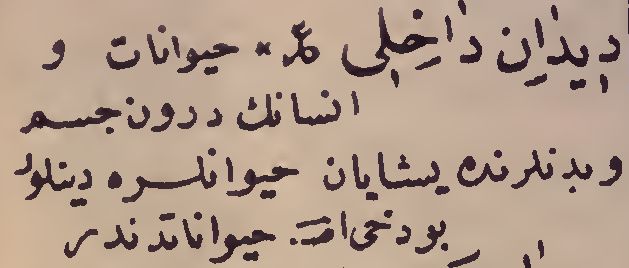 دِيدَانِ دَاخِلِى حيوانات و
انسانك درون جسم
وبدنلرنده يشايان حيوانلره دينلور
بودخى حيواناتدندر